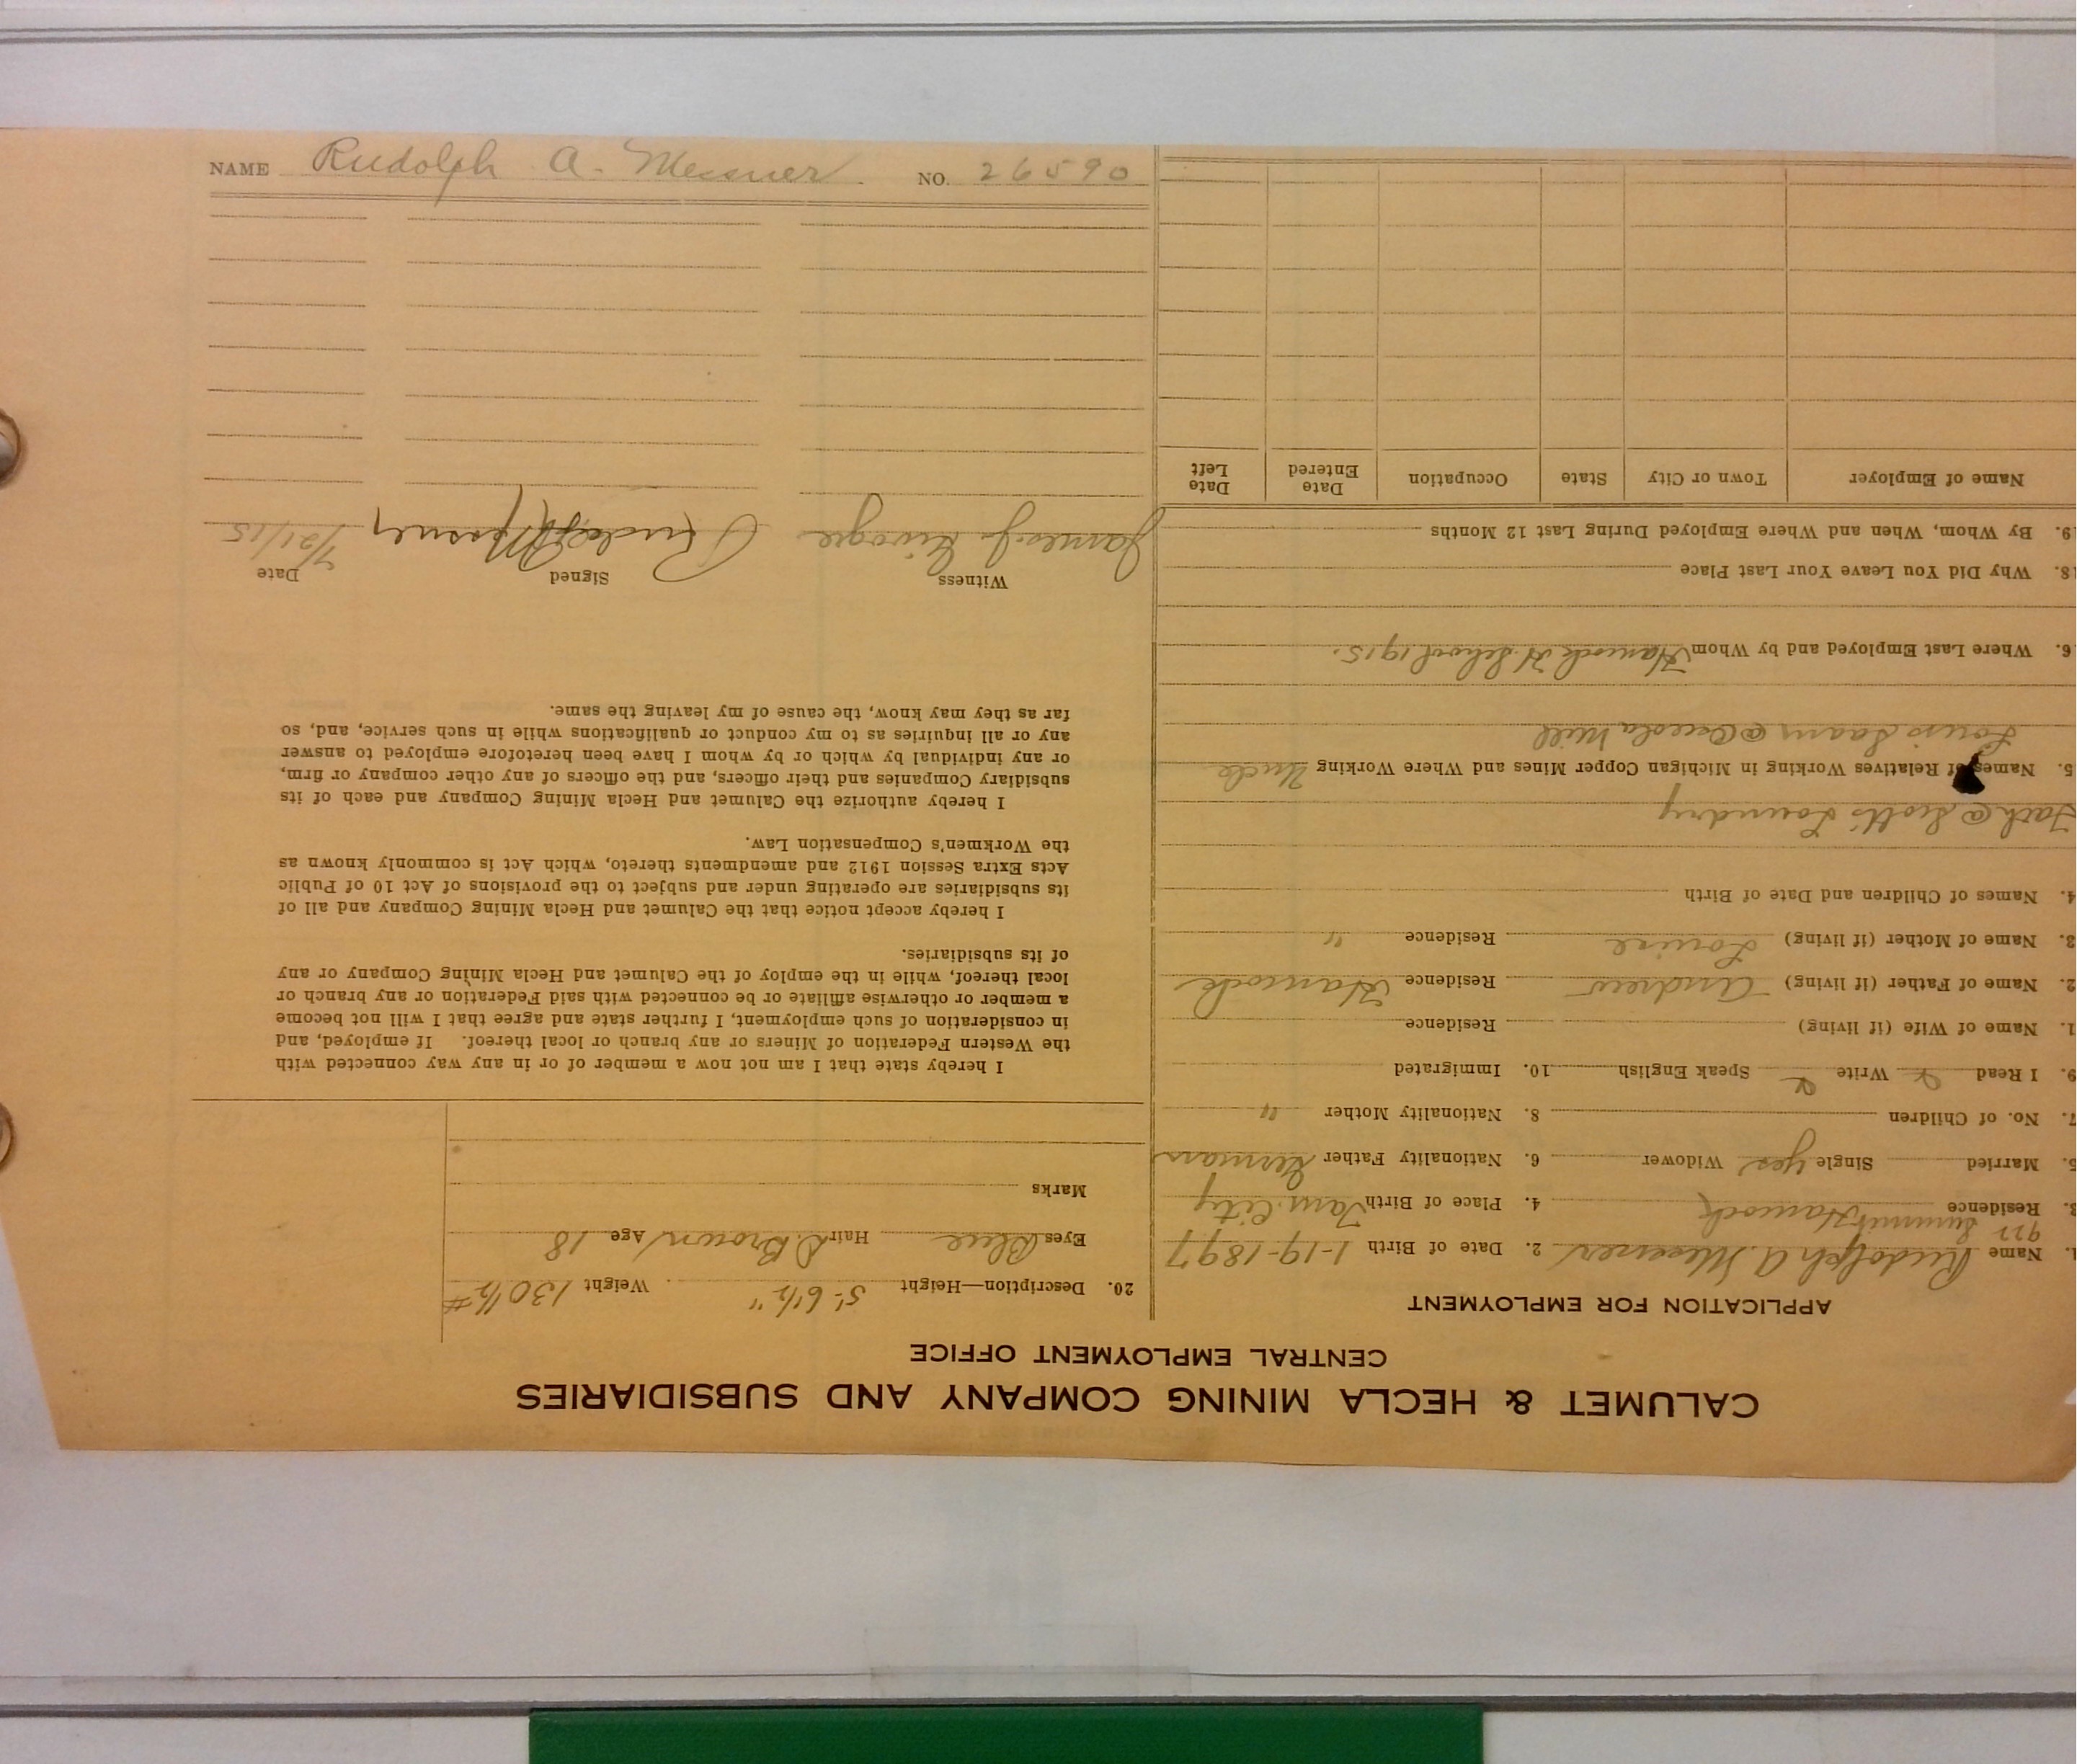 NAME Rudolph A. Messner NO. 26590
CALUMET & HECLA MINING COMPANY AND SUBSIDIARIES
CENTRAL EMPLOYMENT OFFICE
APPLICATION FOR EMPLOYMENT
1. Name Rudolph A. Messner 2. Date of Birth 1-19-1897
927 Summit
3. Residence Hancock 4. Place of Birth City
5. Married Single Yes Widower 6. Nationality Father German
7. No. of Children 8. Nationality Mother "
9. I Read Write Speak English 10. Immigrated
1. Name of Wife (if living) Residence
2. Name of Father (if living) Andrew Residence Hancock
3. Name of Mother (if living) Louise Residence "
4. Names of Children and Date of Birth
Fath @ Scott's Foundry
5. Names of Relatives Working in Michigan Copper Mines and Where Working Uncle
Louis @ Osceola Mill
6. Where Last Employed and by Whom Hancock H. School 1915.
18. Why Did You Leave Your Last Place
19. By Whom, When and Where Employed During Last 12 Months
Name of Employer Town or City State Occupation Date Entered Date Left
20. Description—Height 5'-6½" Weight 130½#
Eyes Blue Hair D Brown Age 18
Marks
I hereby state that I am not now a member of or in any way connected with
the Western Federation of Miners or any branch or local thereof. If employed, and
in consideration of such employment, I further state and agree that I will not become
a member or otherwise affiliate or be connected with said Federation or any branch or
local thereof, while in the employ of the Calumet and Hecla Mining Company or any
of its subsidiaries.
I hereby accept notice that the Calumet and Hecla Mining Company and all of
its subsidiaries are operating under and subject to the provisions of Act 10 of Public
Acts Extra Session 1912 and amendments thereto, which Act is commonly known as
the Workmen's Compensation Law.
I hereby authorize the Calumet and Hecla Mining Company and each of its
subsidiary Companies and their officers, and the officers of any other company or firm,
or any individual by which or by whom I have been heretofore employed to answer
any or all inquiries as to my conduct or qualifications while in such service, and, so
far as they may know, the cause of my leaving the same.
Witness Signed Date
James J. Rudolph Messner 7/21/15